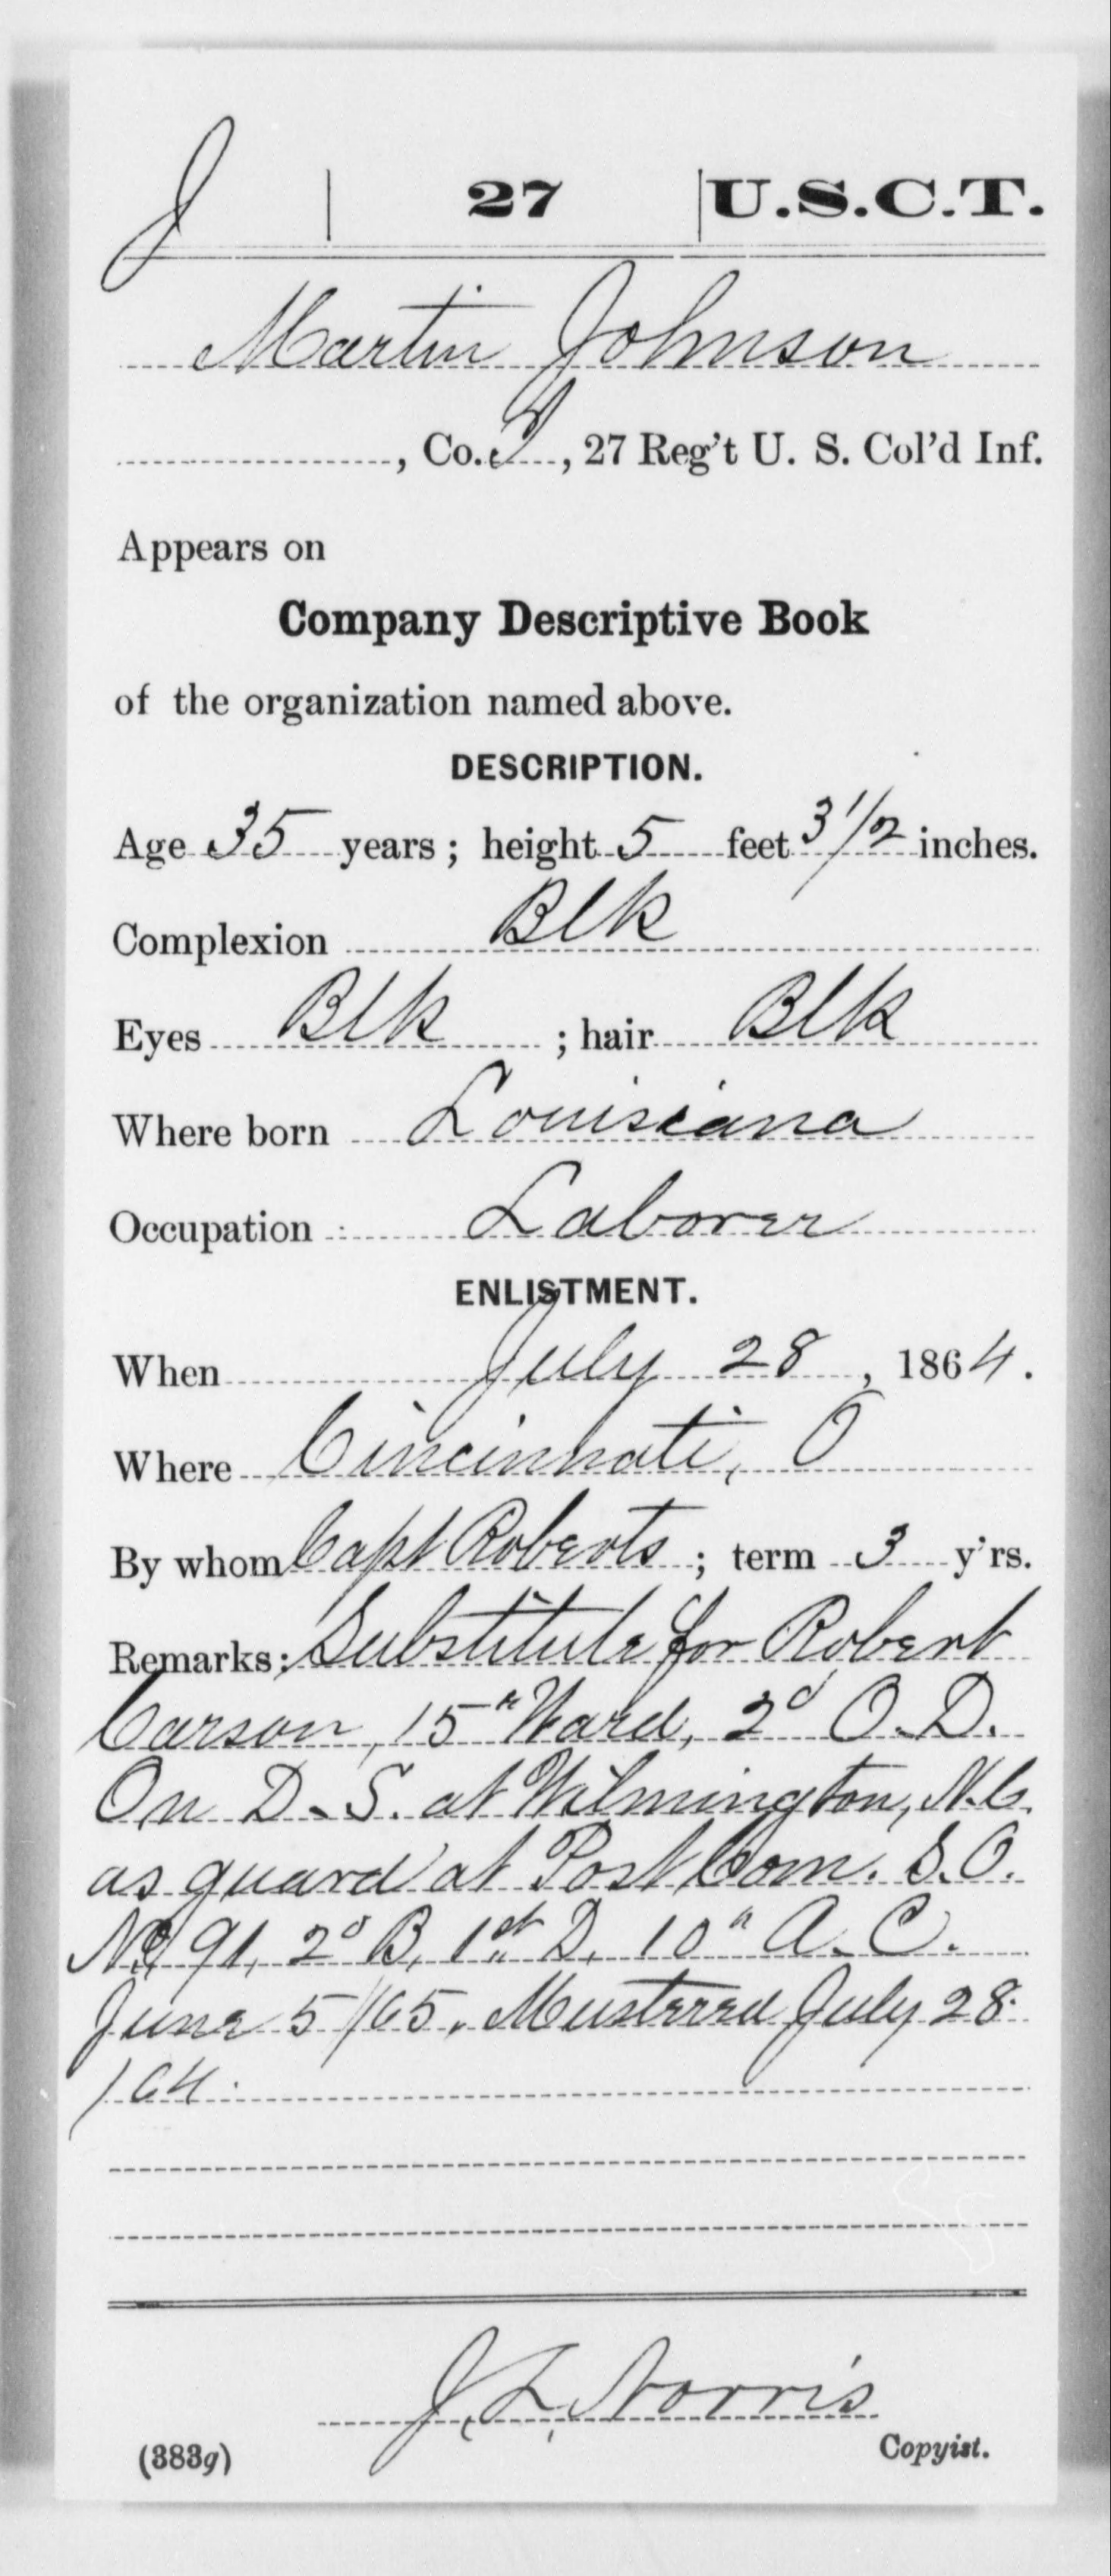 J | 27 | U.S.C.T.
Martin Johnson
, Co. I, 27 Reg't U. S. Col'd Inf.
Appears on
Company Descriptive Book
of the organization named above.
DESCRIPTION.
Age 35 years; height 5 feet 3 1/2 inches.
Complexion Blk
Eyes Blk; hair Blk
Where born Louisiana
Occupation Laborer
ENLISTMENT.
When July 28, 1864.
Where Cincinnati, O
By whom Capt Roberts; term 3 y'rs.
Remarks: Substitute for Robert
Carson, 15" Ward, 2d O. D.
On D. S. at Wilmington, N.C.
as guard at Post Com. S.O.
No 91, 2d B, 1st D, 10" A. C.
June 5/65. Mustered July 28
/64.
J. L. Norris
(383g) Copyist.